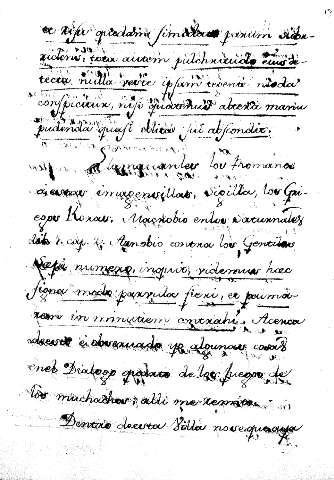 et risu quadam simulato parum
ridens, tota autem pulchritudo eius de-
tecta nulla veste ipsam tecente nuda
conspicitur, nisi quatenus altera manu
pudenda quasi oblita sui abscondit.
Llamavanles los Romanos
a estas imagensillas, Sigilla, los Gri-
egos Koras, Macrobio en los Saturnales
lib. 1. cap. Arnobio contra los Gentiles
numero, inquit, videmus haec
signa modo parvula fieri, et palma-
rem in minutiem contrahi. Acerca
de esto è observado yo algunas cosas
en el Dialogo quarto de los Juegos de
los muchachos; alli me remito.
Dentro de esta Villa no se que aya